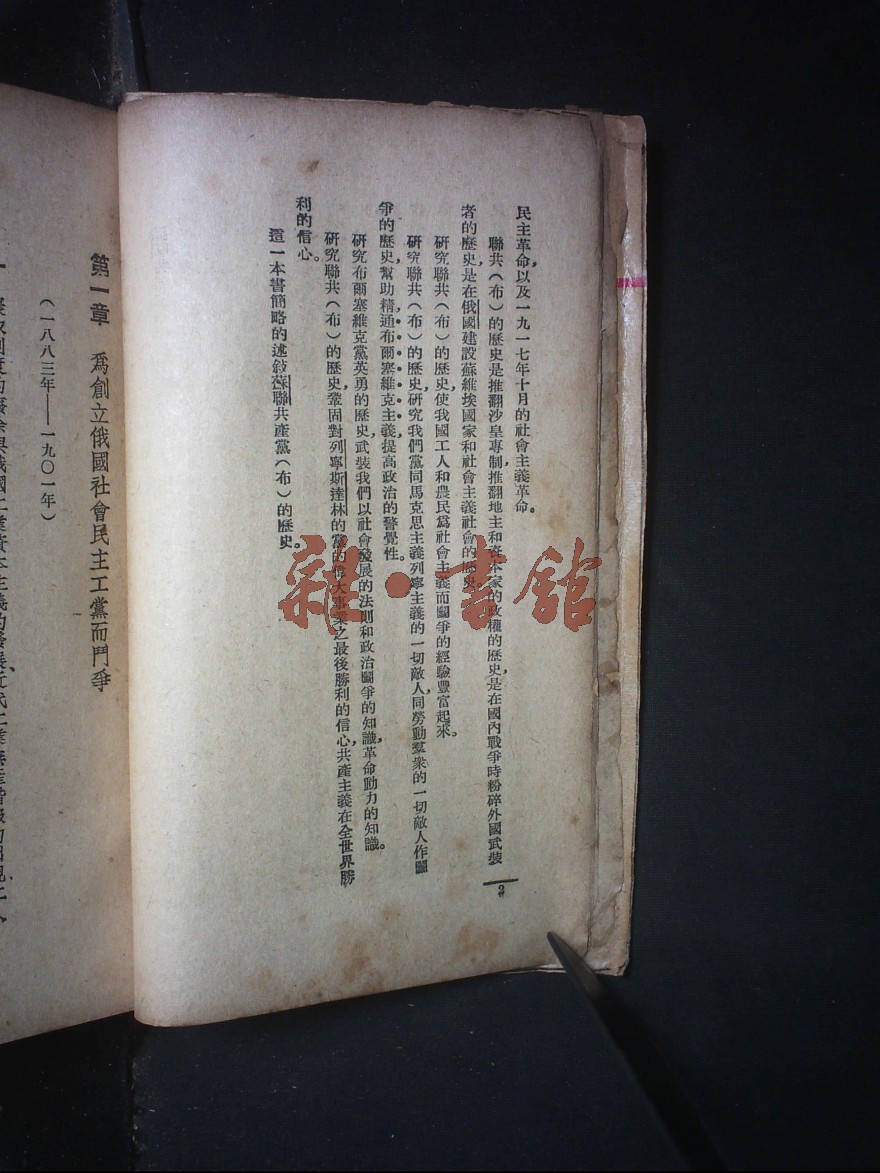 民主革命，以及一九一七年十月的社會主義革命。
聯共（布）的歷史是推翻沙皇專制，推翻地主和資本家的政權的歷史，是在國內戰爭時粉碎外國武裝
者的歷史，是在俄國建設蘇維埃國家和社會主義社會的歷史。
研究聯共（布）的歷史，使我國工人和農民爲社會主義而鬭爭的經驗豐富起來。
研究聯共（布）的歷史，研究我們黨同馬克思主義列寧主義的一切敵人，同勞動羣衆的一切敵人作鬭
爭的歷史，幫助精通布爾塞維克主義，提高政治的警覺性。
研究布爾塞維克黨英勇的歷史，武裝我們以社會發展的法則和政治鬭爭的知識，革命動力的知識。
研究聯共（布）的歷史，鞏固對列寧斯達林的黨的偉大事業之最後勝利的信心，共產主義在全世界勝
利的信心。
這一本書簡略的述敍蘇聯共產黨（布）的歷史。
2
第一章　爲創立俄國社會民主工黨而鬥爭
（一八八三年——一九〇一年）
雜·書館